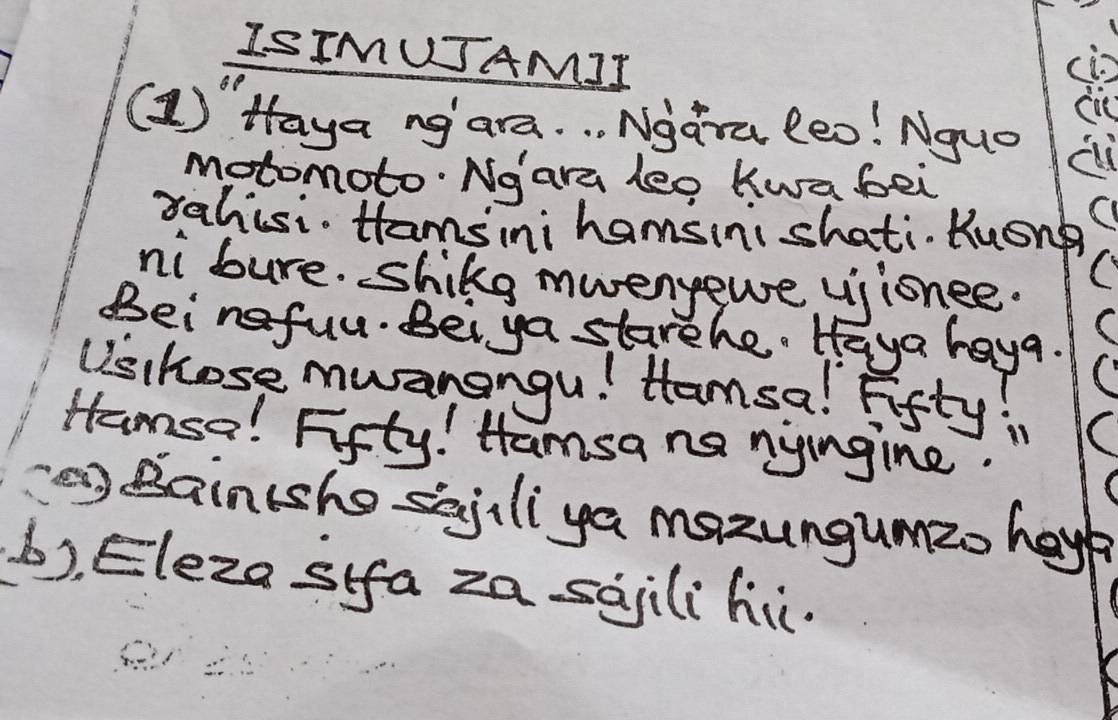 ISIMUJAMII
(1) "Haya ng'ara... Ng'ara leo! Nguo
motomoto. Ng'ara leo kwa bei
rahisi. Hamsini hamsini shati. Kuona
ni bure. Shika mwenyewe ujionee.
Bei nafuu. Bei ya starehe. Haya haya.
Usikose mwanangu! Hamsa! Fifty!
Hamsa! Fifty! Hamsa na nyingine."
(a) Bainisha sajili ya mazungumzo haya
b). Eleza sifa za sajili hii.
(i)
(ii